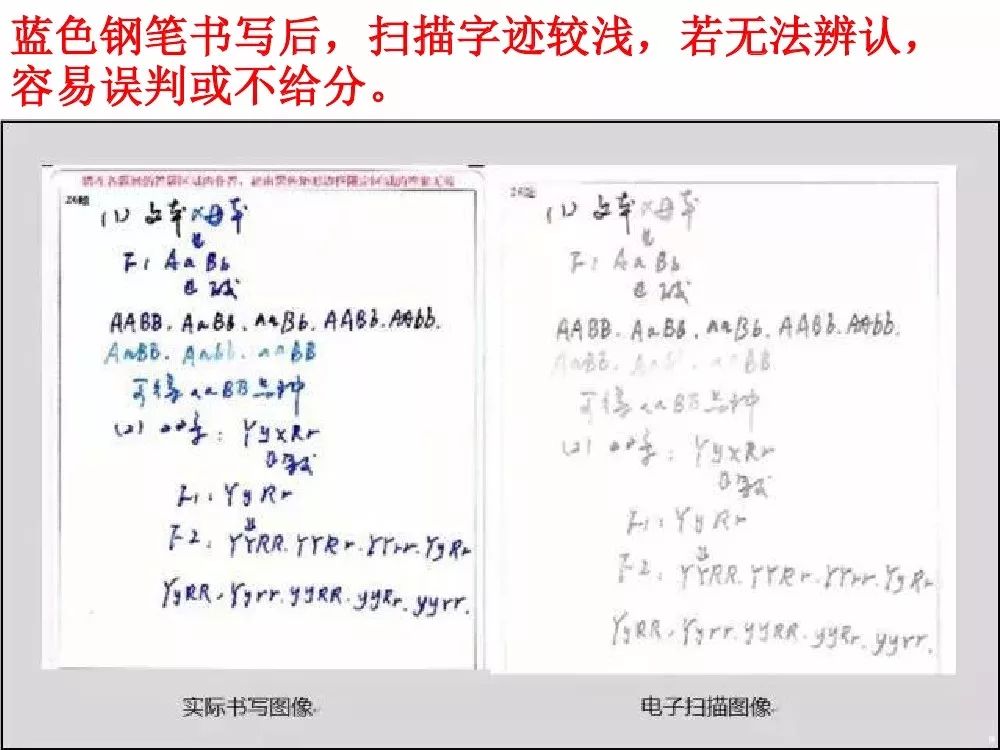 蓝色钢笔书写后，扫描字迹较浅，若无法辨认，
容易误判或不给分。
请在各题目的答题区域内作答，超出黑色矩形边框限定区域的答案无效
26题
(1) 父本×母本
F1 AaBb
AABB、AaBb、aaBb、AABb、AAbb、
AaBB、Aabb、aaBB
可得aaBB品种
(2) YyxRr
F1: YyRr
F2: YYRR、YYRr、YYrr、YyRr
YyRR、Yyrr、yyRR、yyRr、yyrr.
26题
(1) 父本×母本
F1 AaBb
AABB、AaBb、aaBb、AABb、AAbb、
aaBB
可得aaBB品种
(2) YyxRr
F1: YyRr
F2: YYRR、YYRr、YYrr、YyRr
YyRR、Yyrr、yyRR、yyRr、yyrr.
实际书写图像
电子扫描图像